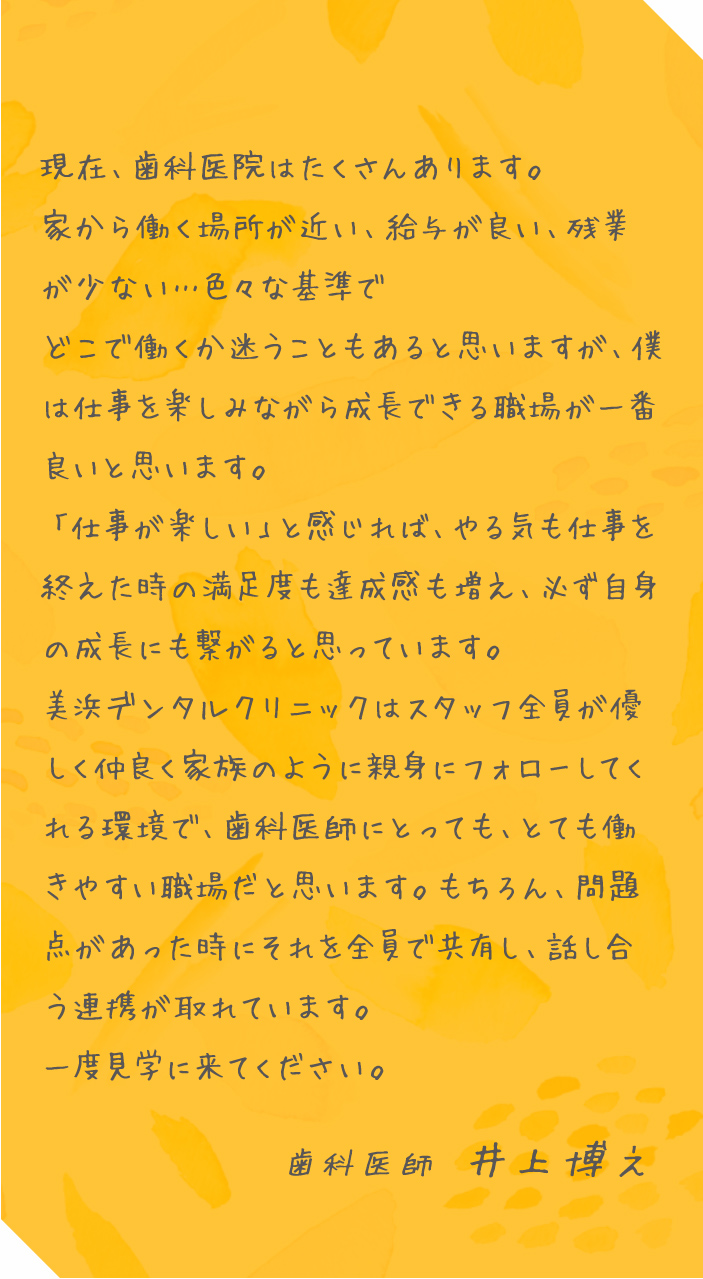 現在、歯科医院はたくさんあります。
家から働く場所が近い、給与が良い、残業
が少ない…色々な基準で
どこで働くか迷うこともあると思いますが、僕
は仕事を楽しみながら成長できる職場が一番
良いと思います。
「仕事が楽しい」と感じれば、やる気も仕事を
終えた時の満足度も達成感も増え、必ず自身
の成長にも繋がると思っています。
美浜デンタルクリニックはスタッフ全員が優
しく仲良く家族のように親身にフォローしてく
れる環境で、歯科医師にとっても、とても働
きやすい職場だと思います。もちろん、問題
点があった時にそれを全員で共有し、話し合
う連携が取れています。
一度見学に来てください。
歯科医師 井上博之